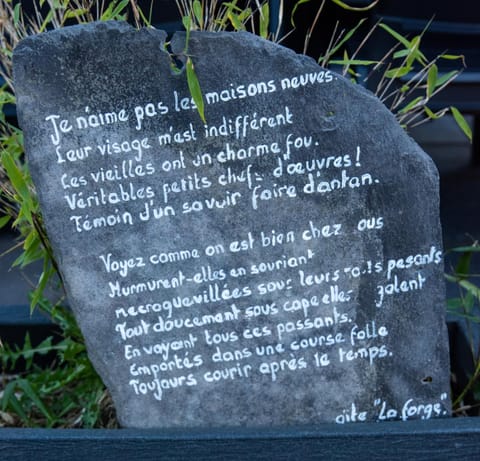 Je n'aime pas les maisons neuves
Leur visage m'est indifférent
Les vieilles ont un charme fou.
Véritables petits chef-d'œuvres!
Témoin d'un savoir faire d'antan.
Voyez comme on est bien chez ous
Murmurent-elles en souriant
recroquevillées sous leurs pesants
Tout doucement sous cape elles
En voyant tous ces passants.
Emportés dans une course folle
Toujours courir après le temps.
gîte "La forge"